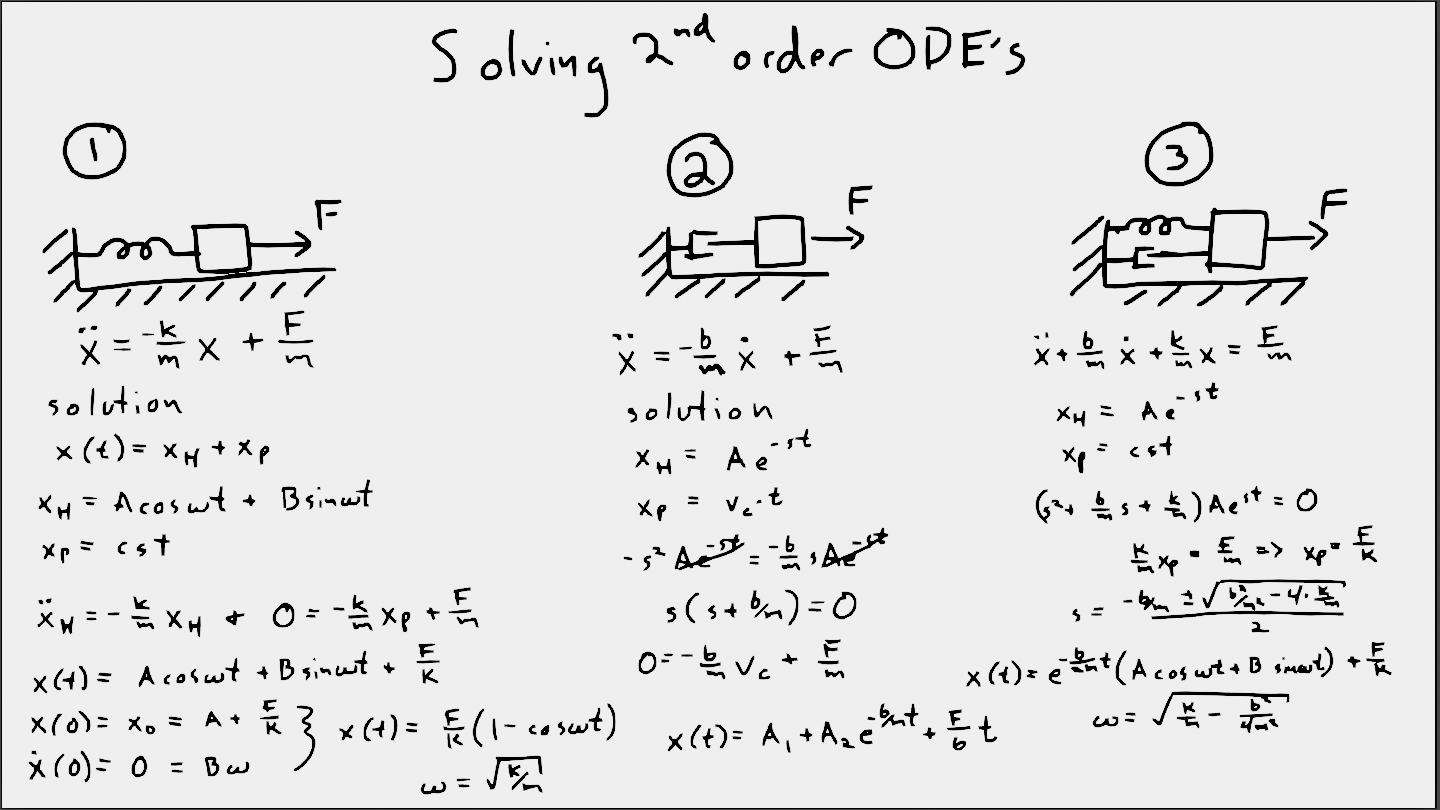 Solving 2nd order ODE's
①
F
ẍ = -k/m x + F/m
solution
x(t) = x_H + x_p
x_H = A cos ωt + B sin ωt
x_p = cst
ẍ_H = -k/m x_H & 0 = -k/m x_p + F/m
x(t) = A cos ωt + B sin ωt + F/k
x(0) = x_0 = A + F/k
ẋ(0) = 0 = Bω
x(t) = F/k (1 - cos ωt)
ω = √(k/m)
②
F
ẍ = -b/m ẋ + F/m
solution
x_H = A e^{-st}
x_p = v_c · t
-s² Ae^{-st} = -b/m s Ae^{-st}
s(s + b/m) = 0
0 = -b/m v_c + F/m
x(t) = A_1 + A_2 e^{-b/m t} + F/b t
③
F
ẍ + b/m ẋ + k/m x = F/m
x_H = A e^{-st}
x_p = cst
(s² + b/m s + k/m) A e^{st} = 0
k/m x_p = F/m => x_p = F/k
s = (-b/m ± √(b²/m² - 4 · k/m)) / 2
x(t) = e^{-b/2m t} (A cos ωt + B sin ωt) + F/k
ω = √(k/m - b²/4m²)